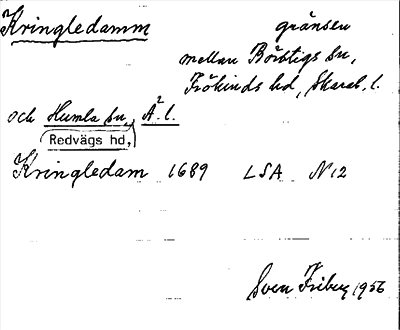 Kringledamm gränsen
mellan Börstigs sn,
Frökinds hd, Skarab. l.
och Humla sn, Ä. l.
Redvägs hd,
Kringledam 1689 LSA N12
Sven Friberg 1956